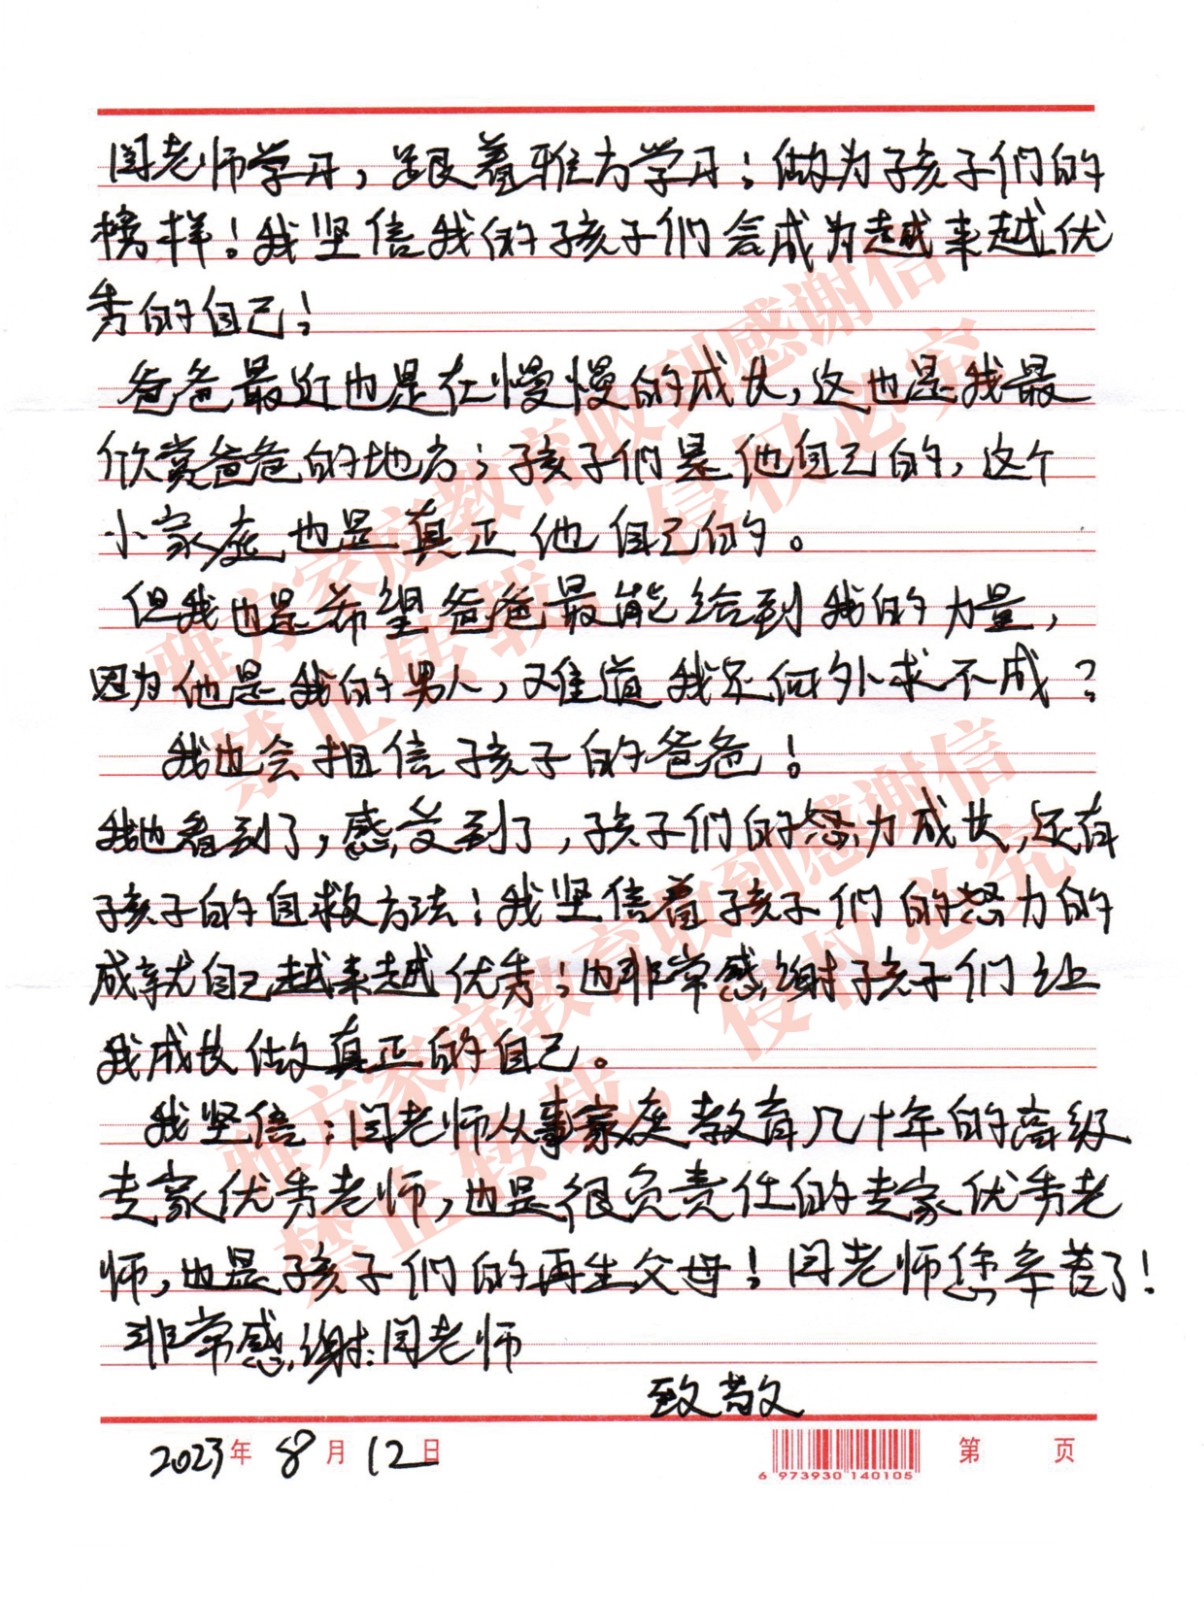 闫老师学习，跟着雅方学习；做为孩子们的
榜样！我坚信我的孩子们会成为越来越优
秀的自己！
爸爸最近也是在慢慢的成长，这也是我最
欣赏爸爸的地方；孩子们是他自己的，这个
小家庭也是真正他自己的。
但我也是希望爸爸最能给到我的力量，
因为他是我的男人，难道我还向外求不成？
我也会相信孩子的爸爸！
我也看到了，感受到了，孩子们的努力成长，还有
孩子的自救方法！我坚信着孩子们的努力的
成就自己越来越优秀；也非常感谢孩子们让
我成长做真正的自己。
我坚信：闫老师从事家庭教育几十年的高级
专家优秀老师，也是很负责任的专家优秀老
师，也是孩子们的再生父母！闫老师您辛苦了！
非常感谢：闫老师
致敬
2023年 8月 12日
6 973930 140105
第 页
雅方家庭教育收到感谢信
禁止转载，侵权必究
雅方家庭教育收到感谢信
禁止转载，侵权必究